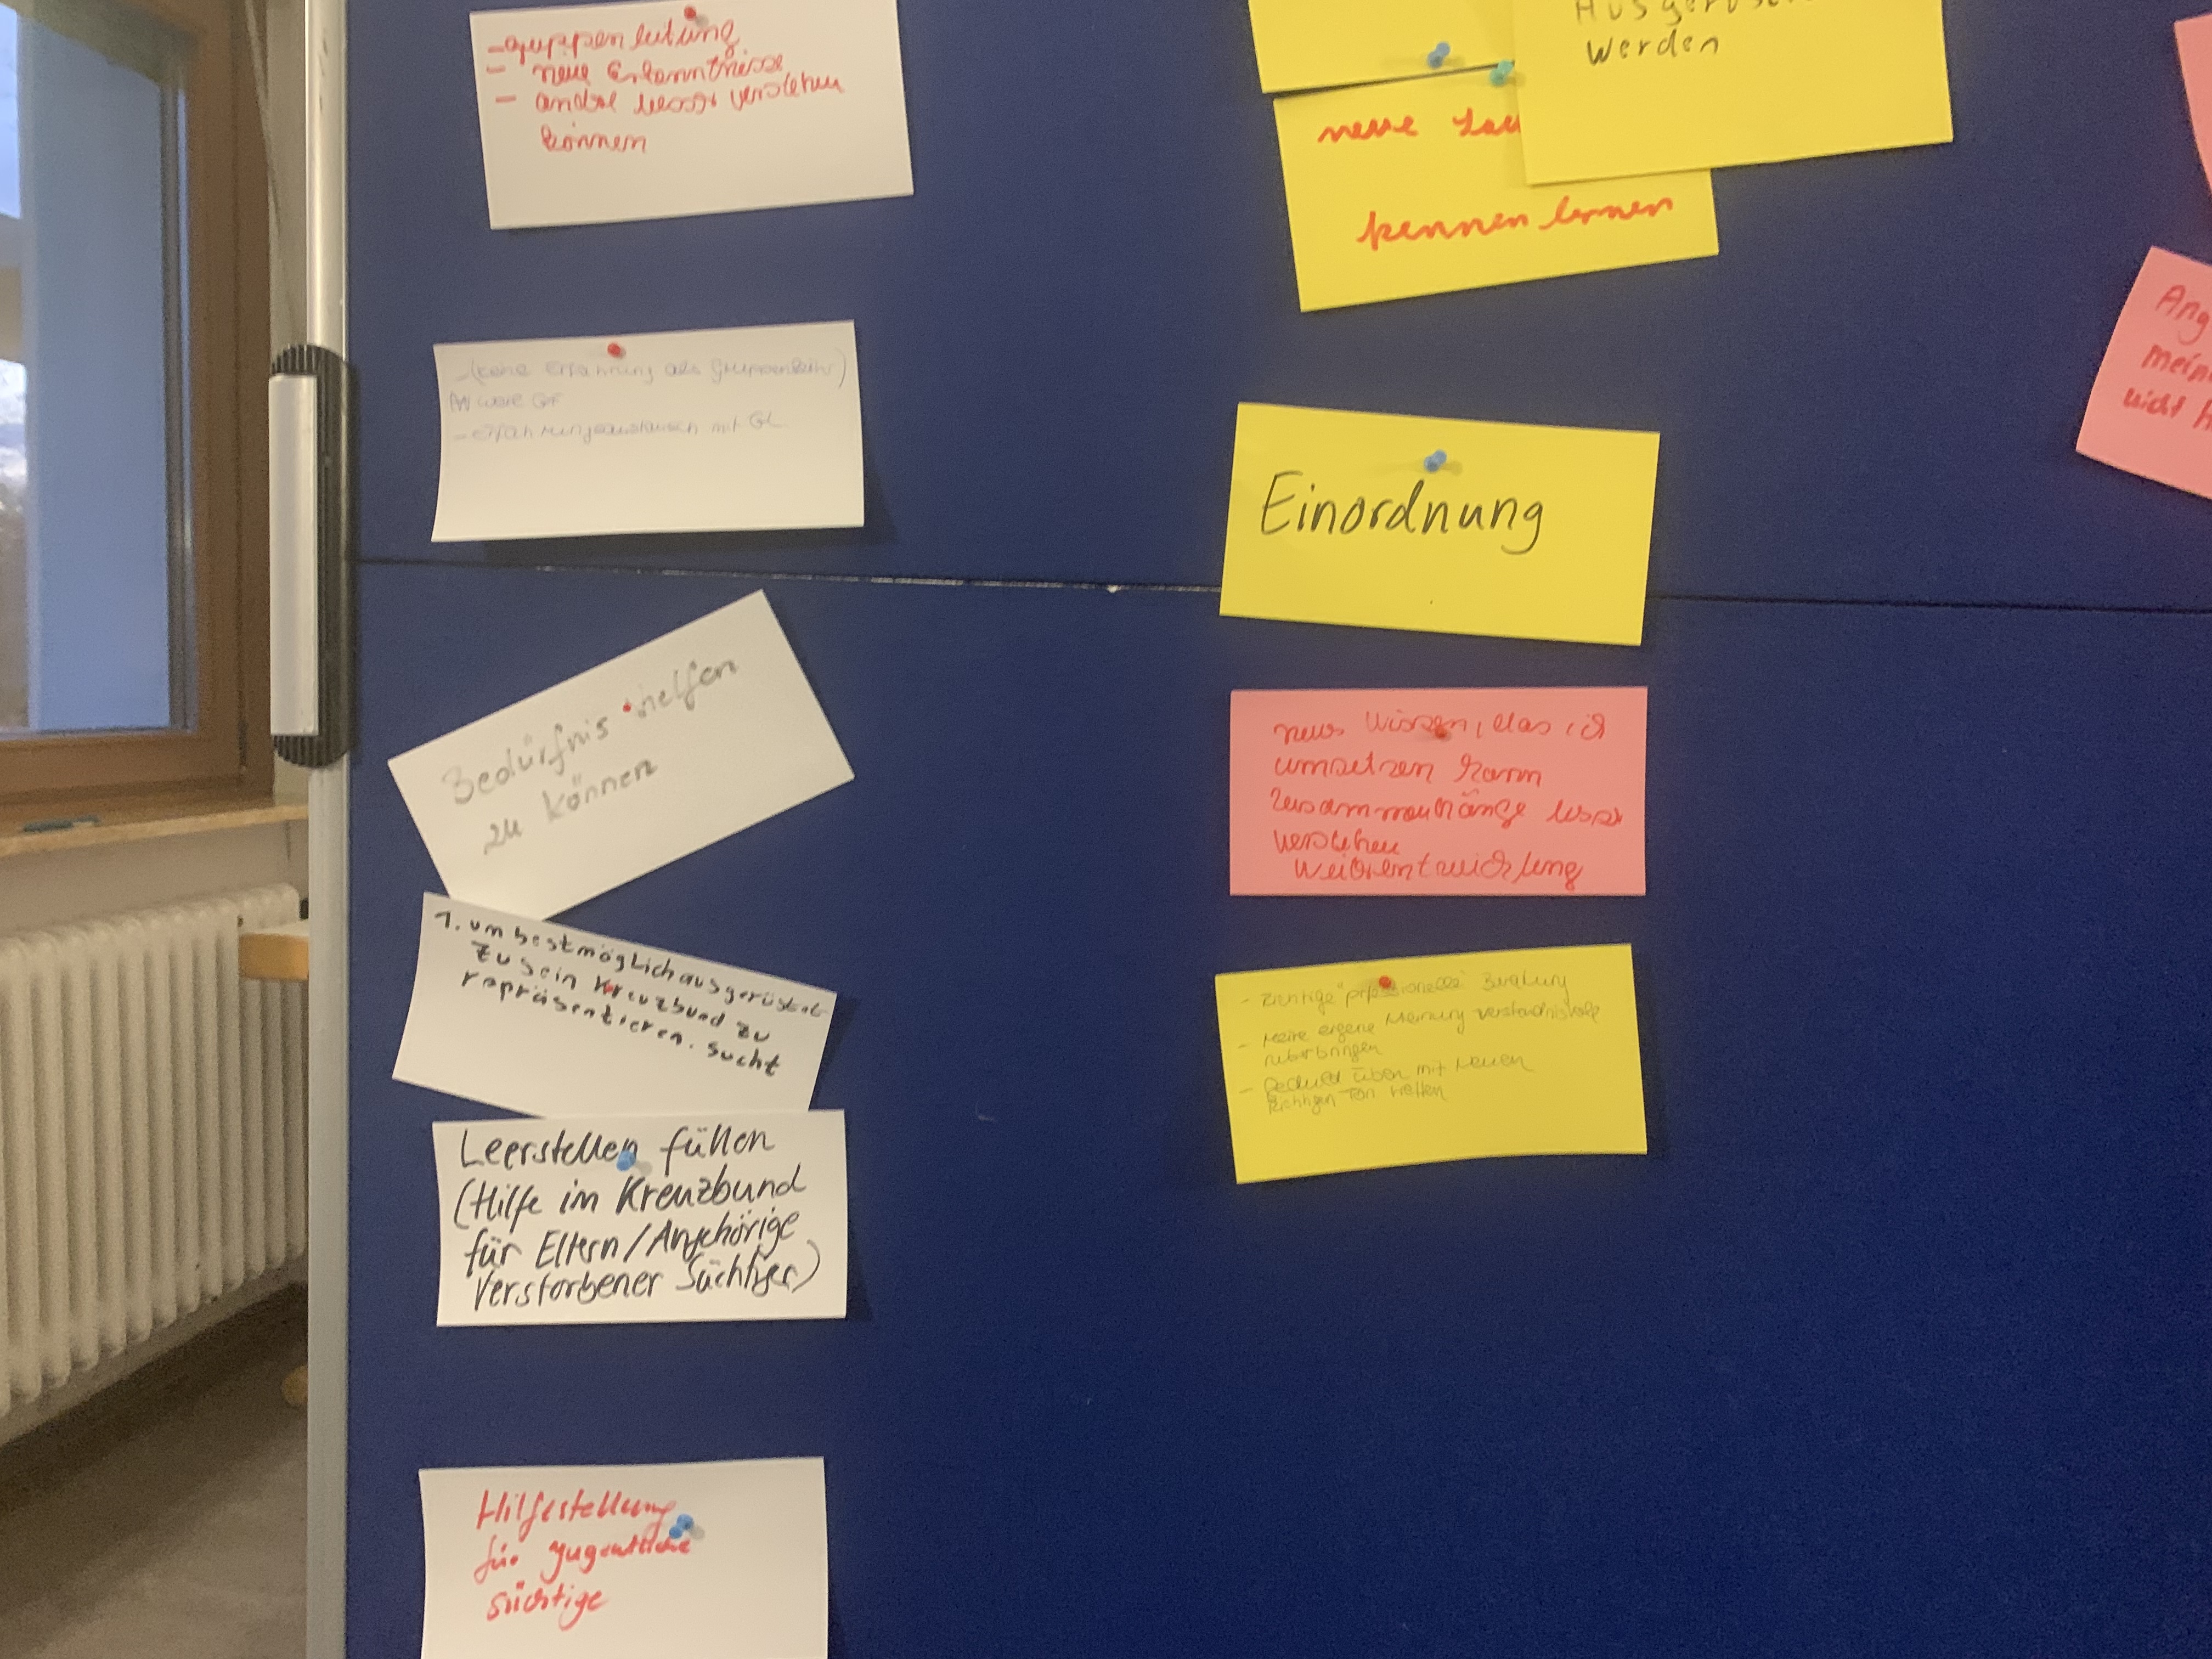 - gruppenleitung
- neue Erkenntnisse
- andre besser verstehen
können
- (keine Erfahrung als Gruppenleiter)
- Erfahrungsaustausch mit GL
Bedürfnis helfen
zu können
1. um bestmöglich ausgerüstet
zu sein Kreuzbund zu
repräsentieren. Sucht
Leerstellen füllen
(Hilfe im Kreuzbund
für Eltern/Angehörige
Verstorbener Süchtiger)
Hilfestellung
für jugentliche
süchtige
Werden
neue
kennen lernen
Einordnung
neues Wissen, das ich
umsetzen kann
Zusammenhänge besser
verstehen
Weiterentwicklung
- Meine eigene Meinung verständnisvoll
- Geduld üben mit Neuen
Richtigen Ton treffen
nicht